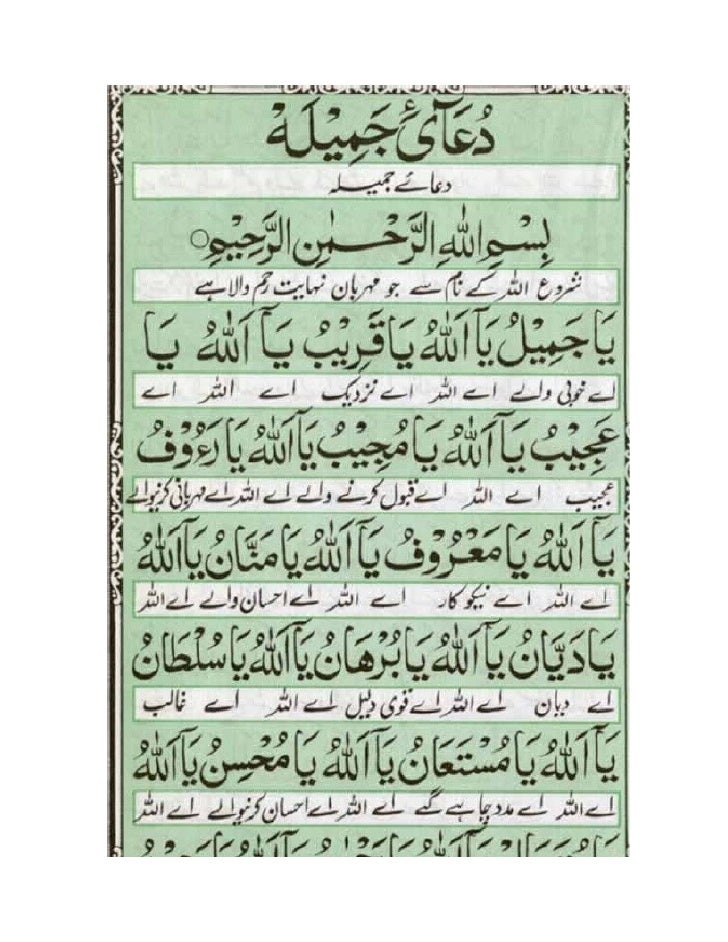 دُعَآئُ جَمِيْلَهْ
دعائے جمیلہ
بِسْمِ اللهِ الرَّحْمٰنِ الرَّحِيْمِ○
شروع اللہ کے نام سے جو مہربان نہایت رحم والا ہے
يَا جَمِيْلُ يَآ اَللهُ يَا قَرِيْبُ يَآ اَللهُ يَا
اے خوبی والے اے اللہ اے نزدیک اے اللہ اے
عَجِيْبُ يَآ اَللهُ يَا مُجِيْبُ يَآ اَللهُ يَا رَءُوْفُ
عجیب اے اللہ اے قبول کرنے والے اے اللہ اے مہربانی کرنیوالے
يَآ اَللهُ يَا مَعْرُوْفُ يَآ اَللهُ يَا مَنَّانُ يَآ اَللهُ
اے اللہ اے نیکوکار اے اللہ اے احسان والے اے اللہ
يَا دَيَّانُ يَآ اَللهُ يَا بُرْهَانُ يَآ اَللهُ يَا سُلْطَانُ
اے دیان اے اللہ اے قوی دلیل اے اللہ اے غالب
يَآ اَللهُ يَا مُسْتَعَانُ يَآ اَللهُ يَا مُحْسِنُ يَآ اَللهُ
اے اللہ اے مدد چاہے گئے اے اللہ اے احسان کرنیوالے اے اللہ